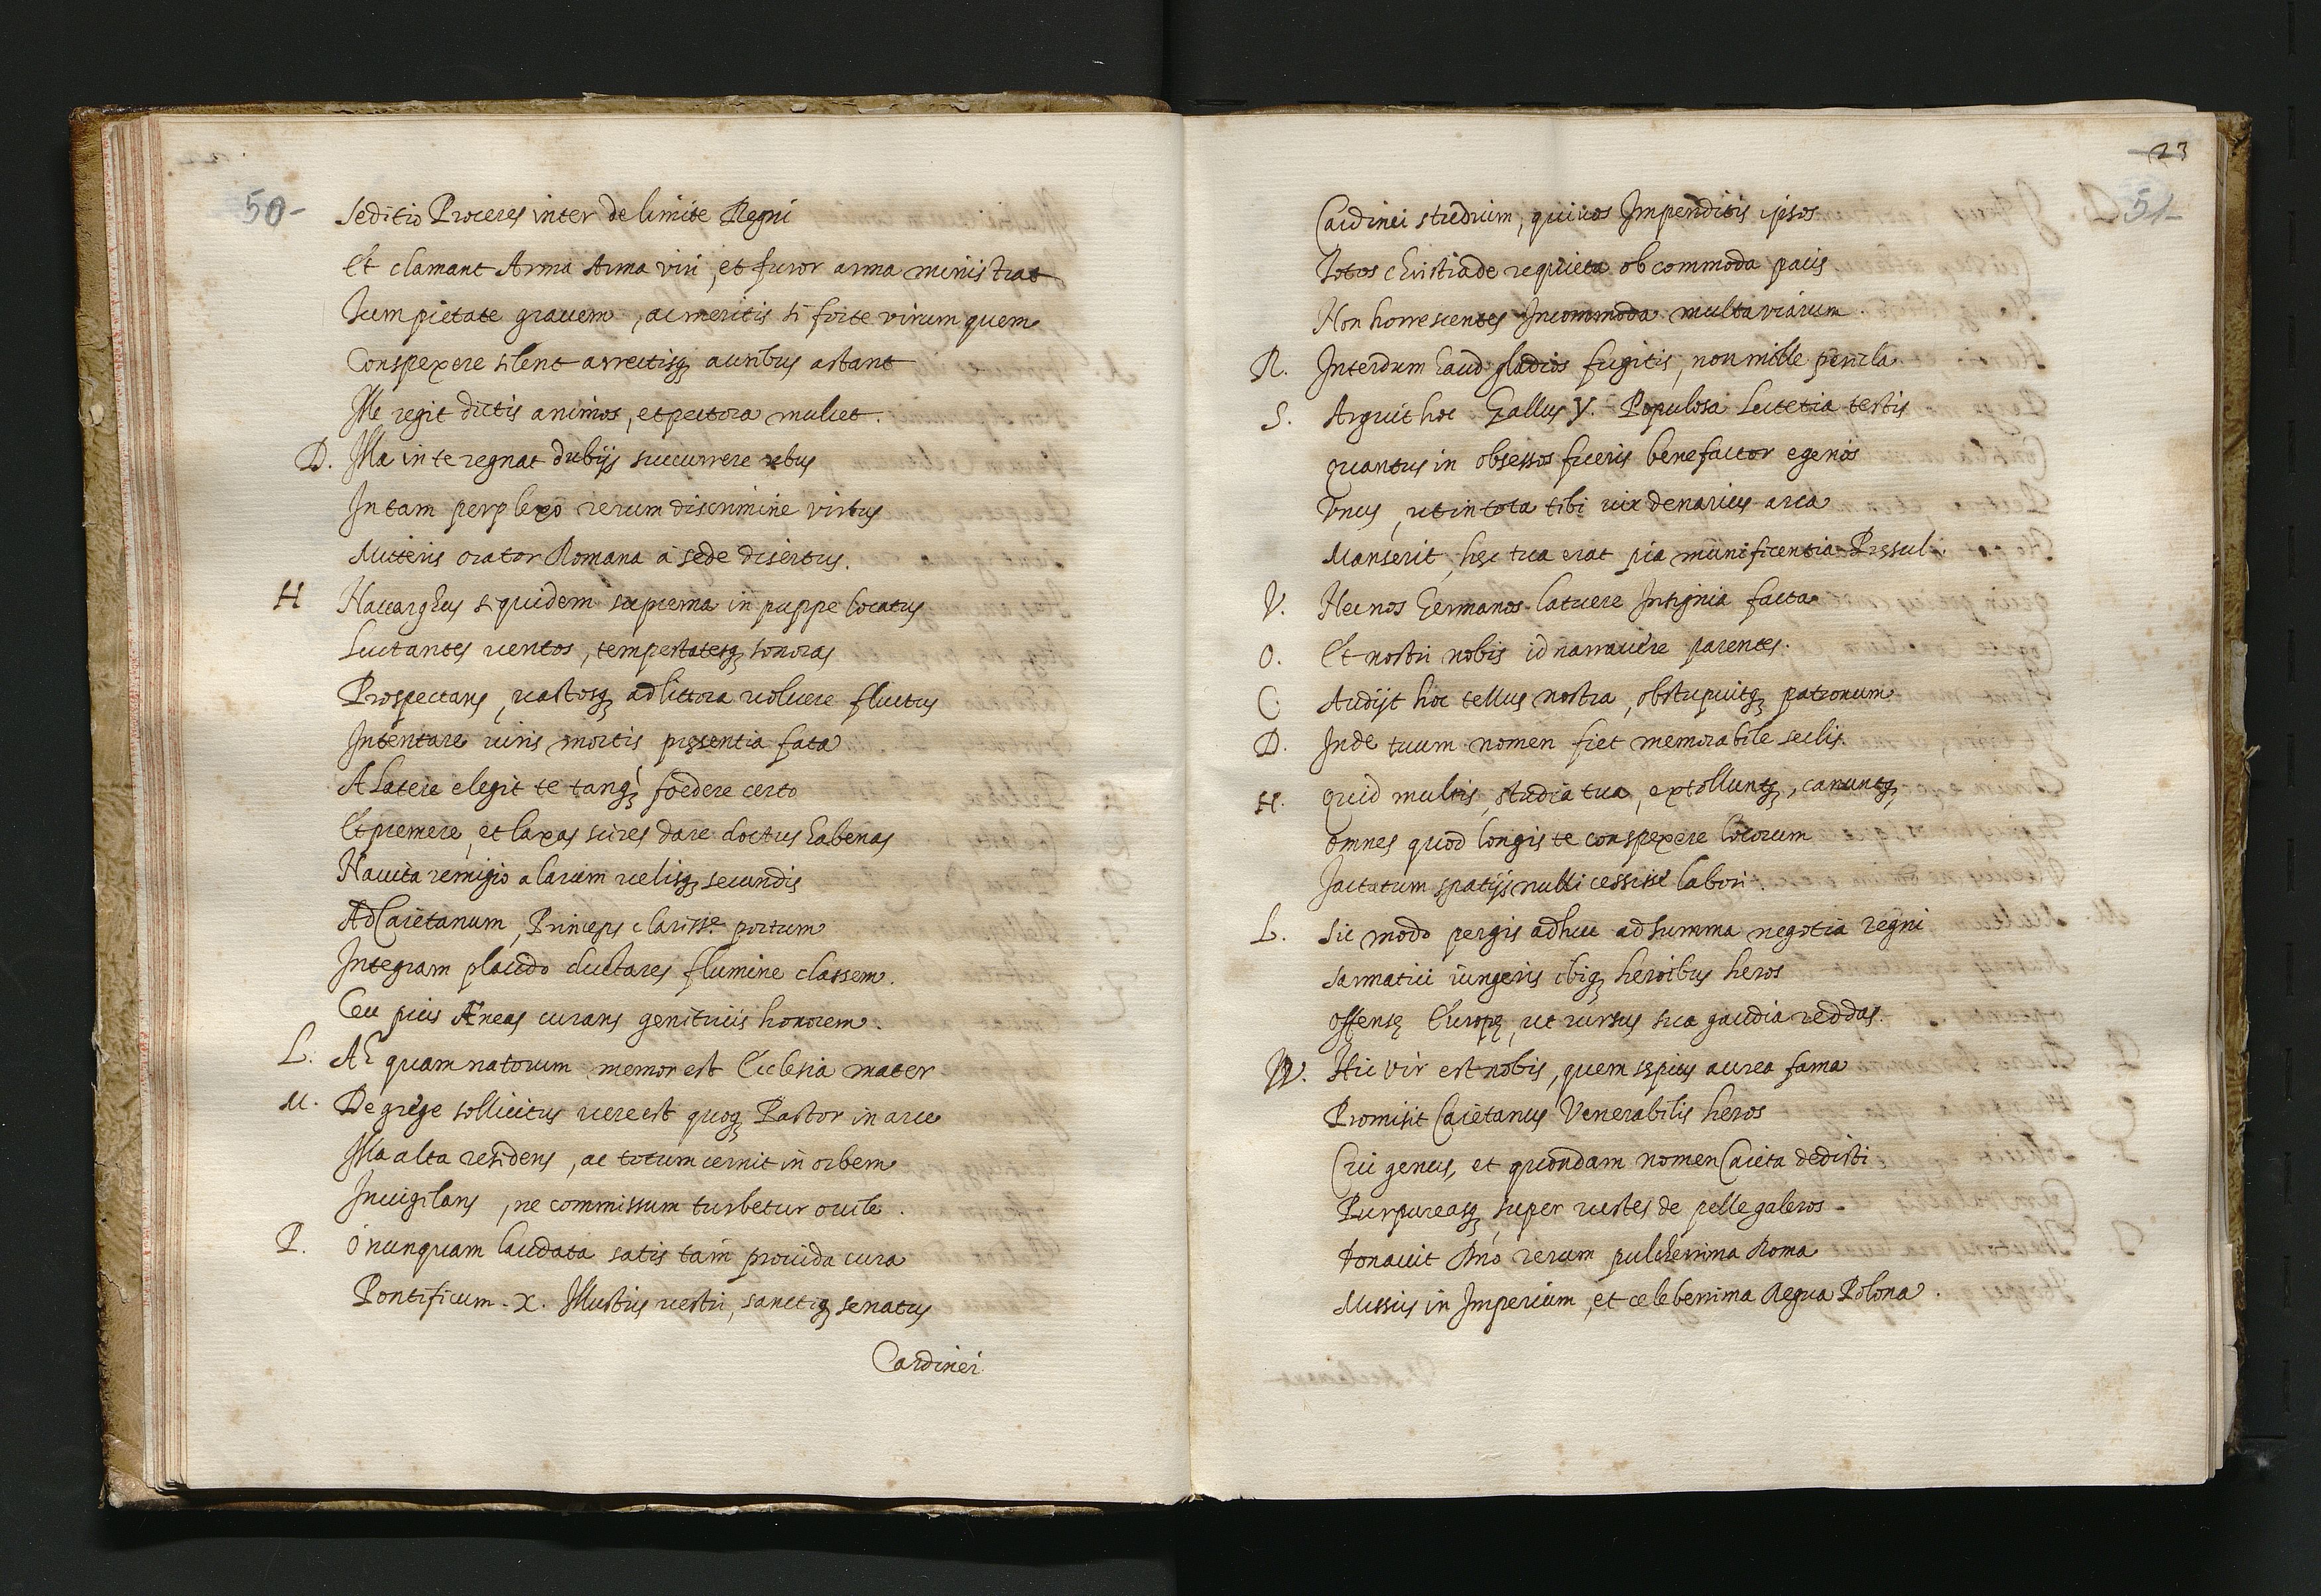 50-
Seditio Proceres inter de limite Regni
Et clamant Arma Arma viri, et furor arma ministrat
Tum pietate grauem, ac meritis si forte virum quem
Conspexere silent arrectisq, auribus astant
Ille regit dictis animos, et pectora mulcet.
D. Illa in te regnat dubijs succurrere rebus
In tam perplexo rerum discrimine virtus
Mitteris orator Romana à sede disertus.
H Nauarghus siquidem suprema in puppe locatus
Luctantes uentos, tempestatesq, sonoras
Prospectans, uastosq, ad littora uoluere fluctus
Intentare uiris mortis pręsentia fata
A Latere elegit te tanq, foedere certo
Et premere, et laxas scires dare doctus habenas
Nauita remigio alarum uelisq, secundis
Ad Caietanum, Princeps clariss.e portum
Integram placido ductares flumine classem.
Ceu pius Æneas curans genitricis honorem.
L. Ah quam natorum memor est Ecclesia mater
M. De grege sollicitus uere est quoq, Pastor in arce
Illa alta residens, ac totum cernit in orbem
Inuigilans, ne commissum turbetur ouile.
P. O nunquam laudata satis tam prouida cura
Pontificum. X. Illustris uestri, sanctiq, senatus
Cardinei
23
51-
Cardinei studium, qui uos Impenditis ipsos
Totos christiadę requieta ob commoda pacis
Non horrescentes Incommoda multa viarum.
R. Interdum haud gladios fugitis, non mille pericla
S. Arguit hoc Gallus Y. Populosa Lutetia testis
Quantus in obsessos fueris benefactor egenos
Vnus, ut in tota tibi uix denarius arca
Manserit, hęc tua erat pia munificentia Pręsul.
V. Nec nos Germanos latuere Insignia facta
O. Et nostri nobis id narrauêre parentes.
C. Audijt hoc tellus nostra, obstupuitq, patronum
D. Inde tuum nomen fiet memorabile seclis.
H. Quid multis, studia tua, extolluntq, canuntq,
Omnes quod longis te conspexere locorum
Jactatum spatijs nulli cessisse labori.
L. Sic modo pergis adhuc ad summa negotia regni
Sarmatici iungeris ibiq, heroibus heros
Offensę Europę, ut rursus sua gaudia reddas.
W. Hic vir est nobis, quem sępius aurea fama
Promisit Caietanus Venerabilis heros
Cui genus, et quondam nomen Caieta dedisti
Purpureasq, super uestes de pelle galeros
Donauit rerum pulcherrima Roma
Missus in Imperium, et celeberrima Regna Polona.